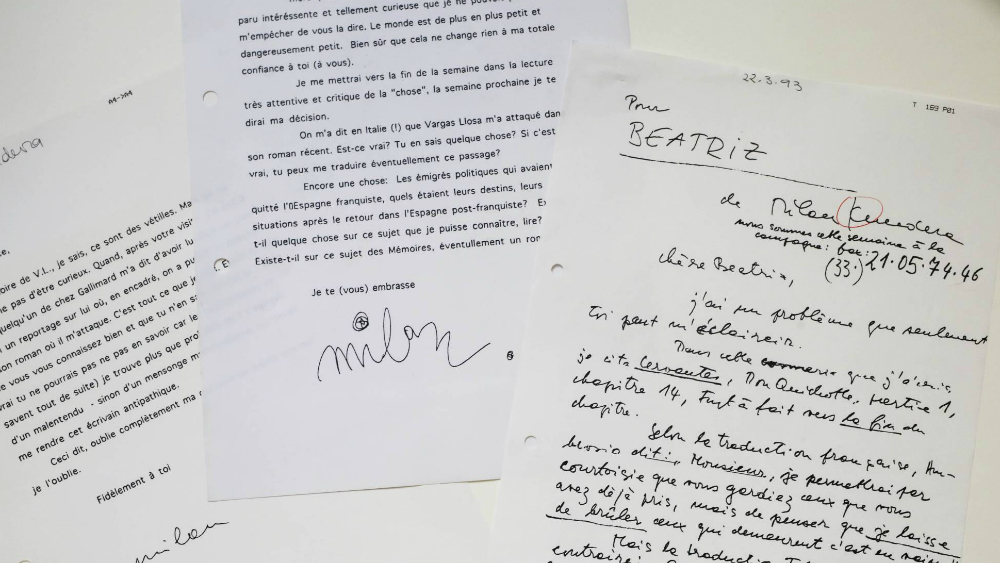 A4->A4
dera
te,
oire de V.L., je sais, ce sont des vétilles. Ma
ne pas d'être curieux. Quand, après votre visi
quelqu'un de chez Gallimard m'a dit d'avoir lu
i un reportage sur lui où, en encadré, on a pu
son roman où il m'attaque. C'est tout ce que je
e vous vous connaissez bien et que tu n'en sa
vrai tu ne pourrais pas ne pas en savoir car le
savent tout de suite) je trouve plus que pro
d'un malentendu - sinon d'un mensonge m
me rendre cet écrivain antipathique.
Ceci dit, oublie complètement ma
je l'oublie.
Fidèlement à toi
milan
paru intéréssente et tellement curieuse que je ne
m'empêcher de vous la dire. Le monde est de plus en plus petit et
dangereusement petit. Bien sûr que cela ne change rien à ma totale
confiance à toi (à vous).
Je me mettrai vers la fin de la semaine dans la lecture
très attentive et critique de la "chose", la semaine prochaine je te
dirai ma décision.
On m'a dit en Italie (!) que Vargas Llosa m'a attaqué dan
son roman récent. Est-ce vrai? Tu en sais quelque chose? Si c'est
vrai, tu peux me traduire éventuellement ce passage?
Encore une chose: Les émigrés politiques qui avaient
quitté l'0Espagne franquiste, quels étaient leurs destins, leurs
situations après le retour dans l'Espagne post-franquiste? E
t-il quelque chose sur ce sujet que je puisse connaître, lire?
Existe-t-il sur ce sujet des Mémoires, éventullement un ron
Je te (vous) embrasse
milan
22.3.93
T 169 P01
Pour
BEATRIZ
de Milan Kundera
nous sommes cette semaine à la
campagne: fax:
(33.) 21.05.74.46
chère Beatriz,
j'ai un problème que seulement
toi peut m'éclaircir.
Dans cette que j'écris,
je cite Cervantes, Don Quichotte, partie 1,
chapitre 14, tout à fait vers la fin du
chapitre.
Selon la traduction française, Am-
brosio dit: Monsieur, je permettrai par
courtoisie que vous gardiez ceux que vous
avez déjà pris, mais de penser que je laisse
de brûler ceux qui demeurent c'est en vain
Mais la traduction
contraire